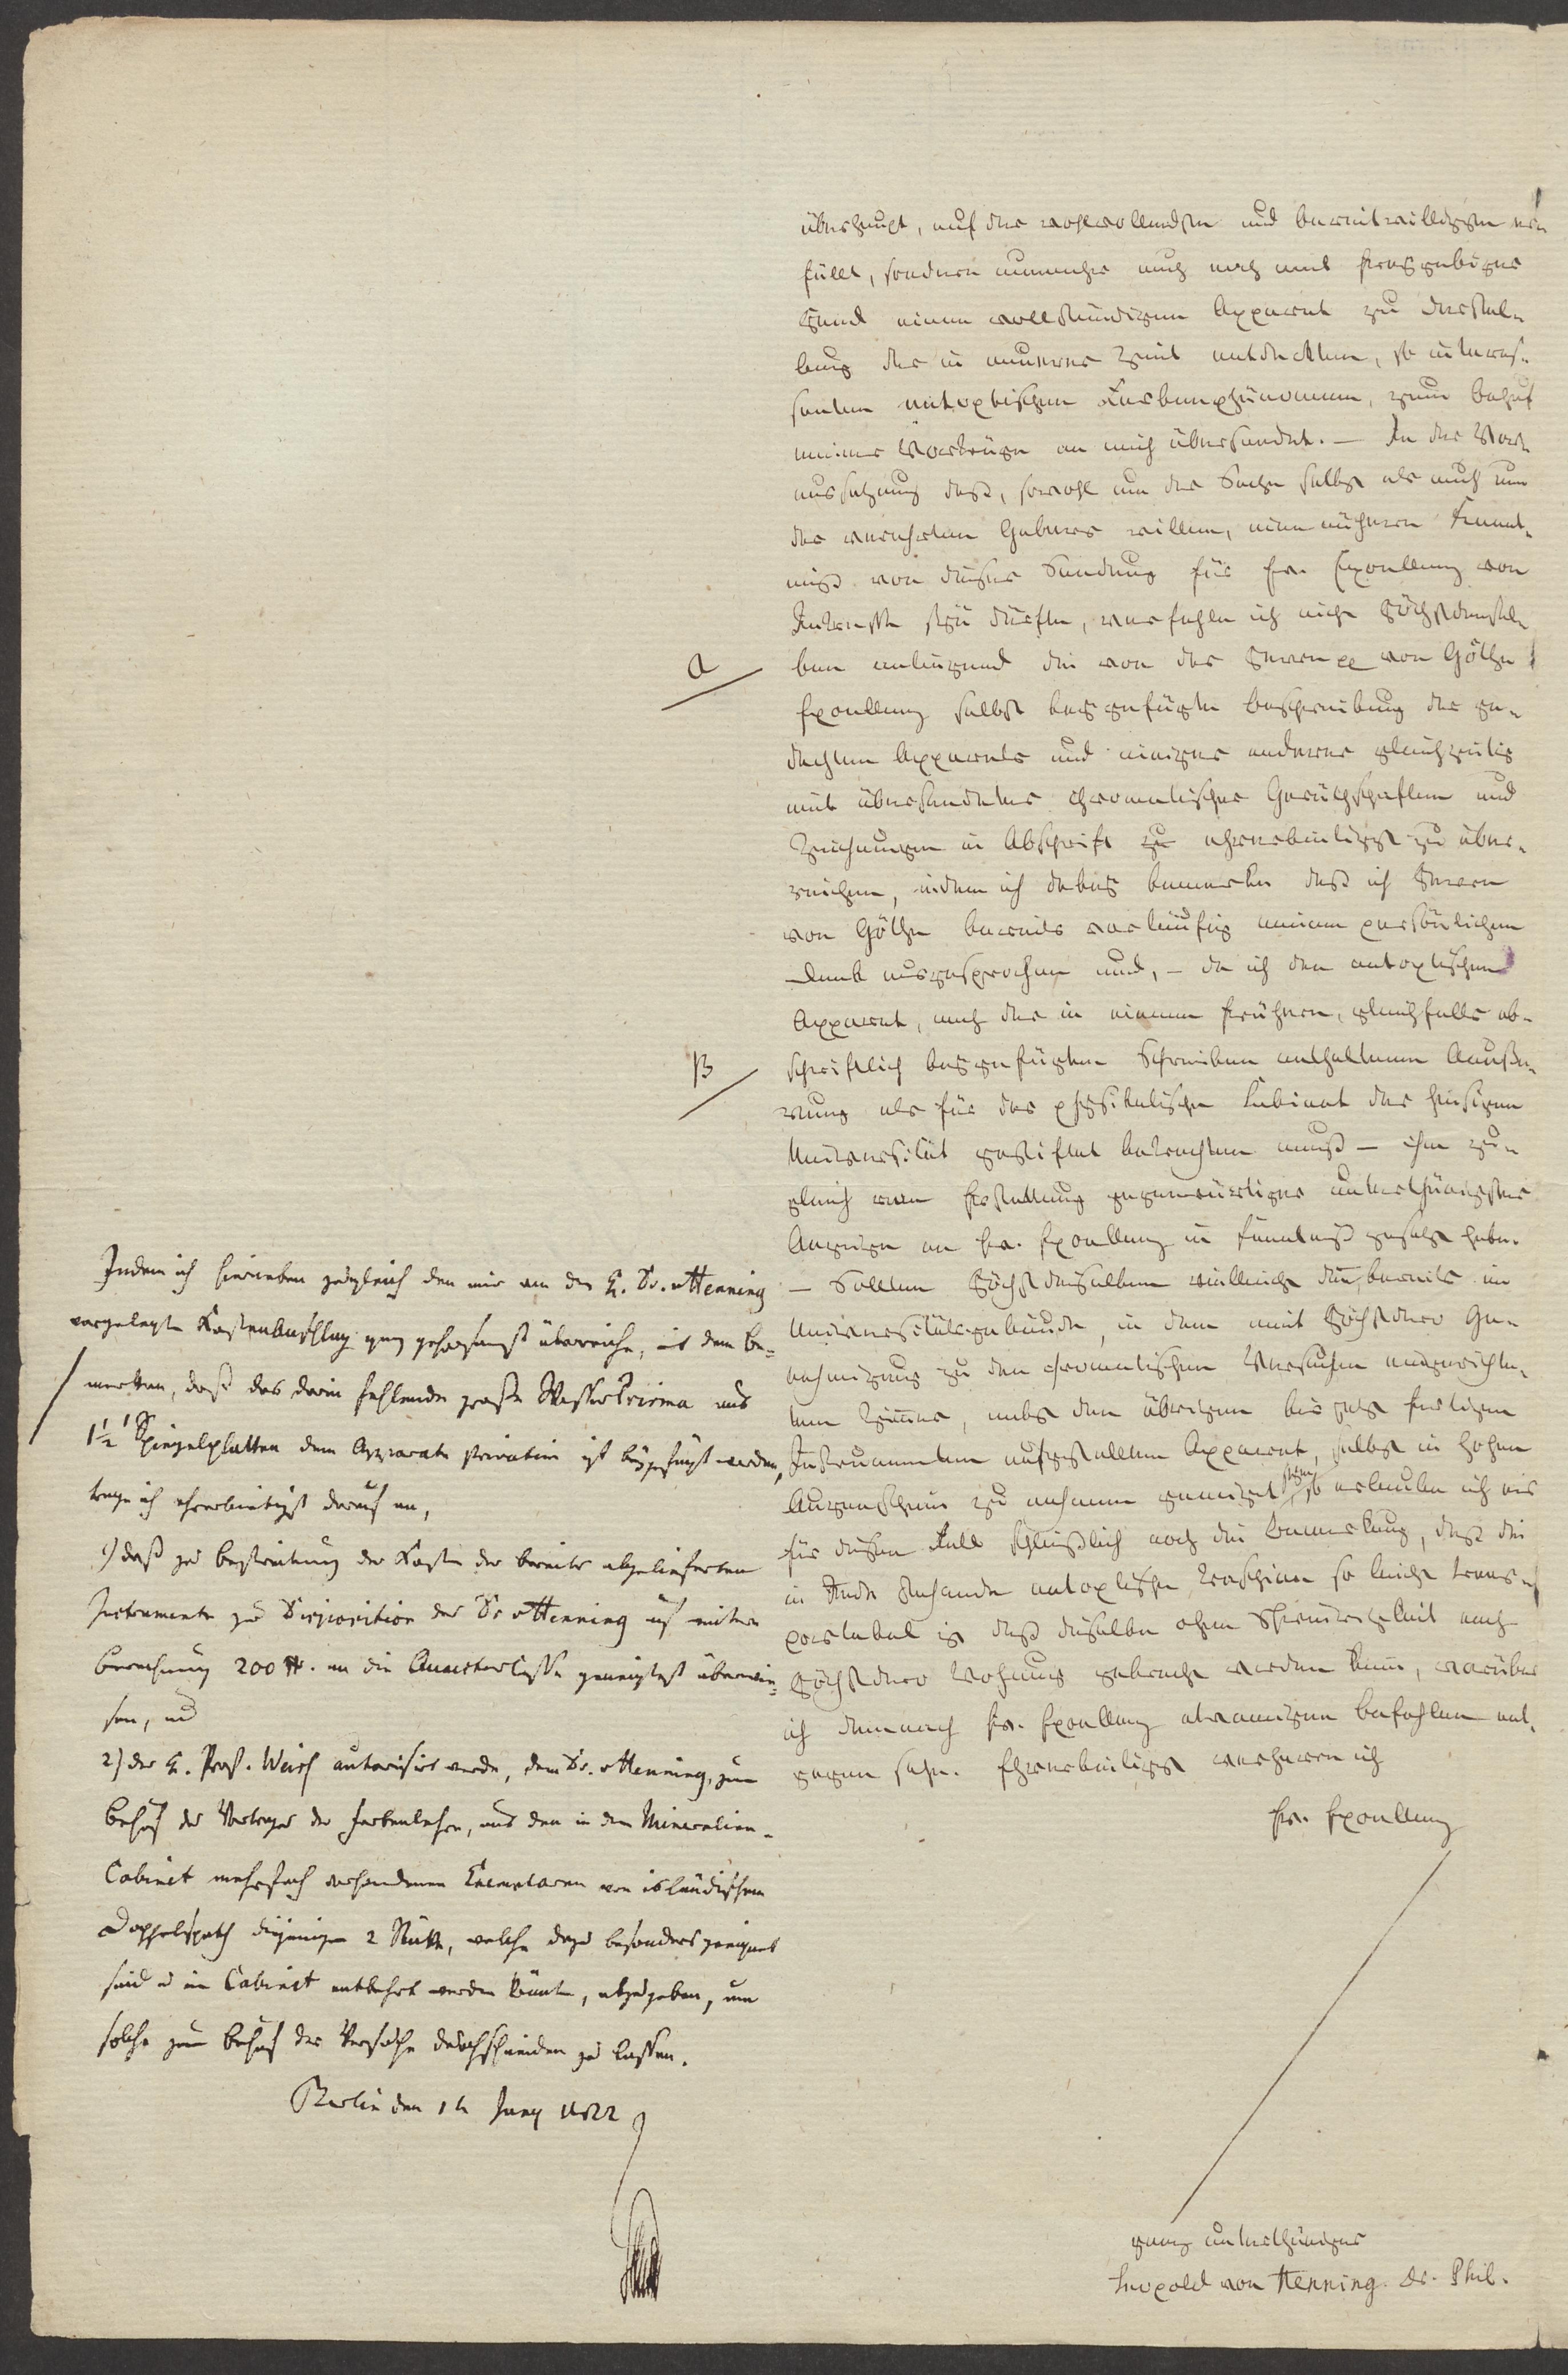 überhaupt, auf das wohlwollendste und bereitwilligste er-
füllt, sondern nunmehr auch noch mit freygebiger
Hand einen vollständigen Apparat zu Darstel-
lung der in neuerer Zeit entdeckten, so interes-
santen entoptischen Farbenphänomene, zum Behuf
meiner Vorträge an mich übersendet. – In der Vor-
aussetzung daß, sowohl um der Sache selbst als auch um
des verehrten Gebers willen, eine nähere Kennt-
niß von dieser Sendung für Ew. Excellenz von
Interesse seyn dürfte, verfehle ich nicht Höchstdensel-
a
ben anliegend die von des Herrn p von Göthe
Excellenz selbst beygefügte Beschreibung des ge-
dachten Apparats und einiger anderer gleichzeitig
mit übersendeter chromatischer Geräthschaften und
Zeichnungen in Abschrift zu ehrerbietigst zu über-
reichen, indem ich dabey bemerke daß ich Herrn
von Göthe bereits vorläufig meinen persönlichen
Dank ausgesprochen und, – da ich den entoptischen
Apparat, nach der in einem frühern, gleichfalls ab-
B
schriftlich beygefügten Schreiben enthaltenen Aeuße-
rung als für das physikalische Kabinet der hiesigen
Universität gestiftet betrachten muß – ihn zu-
gleich von Erstattung gegenwärtiger unterthänigster
Anzeige an Ew. Excellenz in Kenntniß gesetzt habe.
– Sollten Höchstdieselben vielleicht den bereits im
Universitätsgebäude, in dem mit Höchstdero Ge-
nehmigung zu den chromatischen Versuchen eingerichte-
ten Zimmer, nebst den übrigen bis jetzt fertigen
Instrumenten aufgestellten Apparat, selbst in hohen
Augenschein zu nehmen geneigt seyn, so erlaube ich mir
für diesen Fall schließlich noch die Bemerkung, daß die
in Rede stehende entoptische Maschine so leicht trans-
portabel ist daß dieselbe ohne Schwierigkeit nach
Höchstdero Wohnung gebracht werden kann, worüber
ich demnach Ew. Excellenz etwanigen Befehlen ent-
gegen sehe. Ehrerbietigst verharre ich
Ew. Excellenz
ganz unterthäniger
Leopold von Henning. Dr. Phil.
Indem ich hierneben zugleich den mir von des H. Dr. v Henning
vorgelegten Kostenanschlag ganz gehorsamst überreiche, mit dem Be-
merken, daß das darin fehlende große Wasserprisma aus
1½' Spiegelplatten dem Apparate privatim ist beygefügt worden,
trage ich ehrerbietigst darauf an,
1) daß zu Bestreitung der Kosten der bereits abgelieferten
Instrumente zur Disposition des Dr v Henning auf weitere
Berechnung 200 rt. an die Quästurkasse geneigtest überwie-
sen, und
2) der H. Prof. Weiss autorisirt werde, dem Dr. v Henning, zum
Behuf des Vortrages der Farbenlehre, aus den in dem Mineralien-
Cabinet mehrfach vorhandenen Exemplaren von isländischem
Doppelspath diejenigen 2 Stücke, welche dazu besonders geeignet
sind u im Cabinet entbehrt werden könnte, abzugeben, um
solche zum Behuf der Versuche durchschneiden zu lassen.
Berlin den 14 Juny 1822